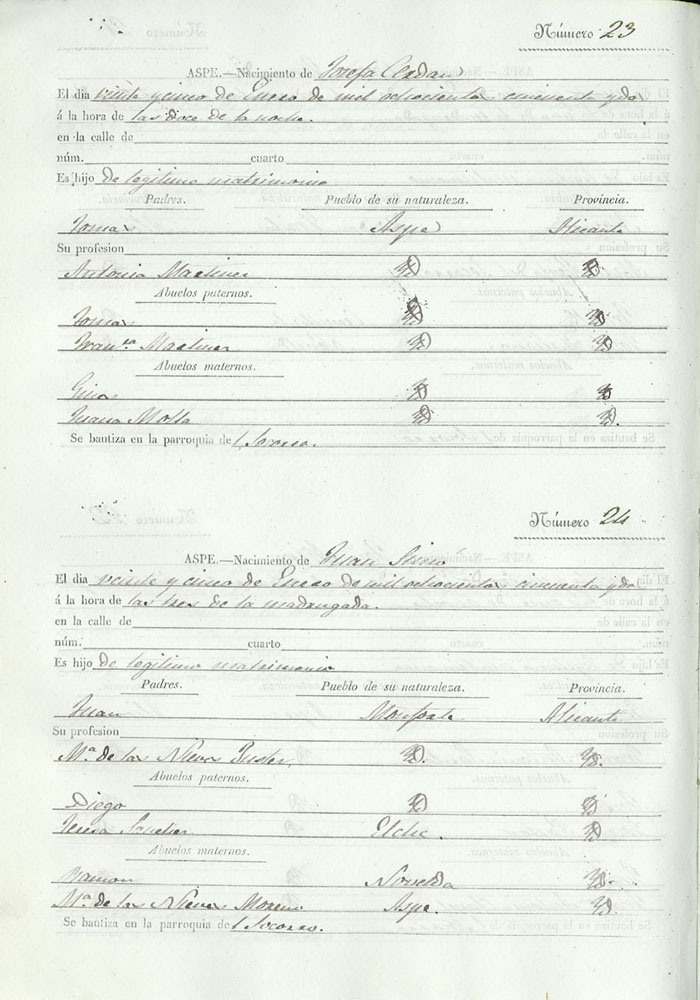 Número 23
ASPE.—Nacimiento de Josefa Cerdan
El dia veinte y cinco de Enero de mil ochocientos cincuenta y dos
á la hora de las doce de la noche.
en la calle de
núm. cuarto
Es hijo de legitimo matrimonio
Padres. Pueblo de su naturaleza. Provincia.
Tomas Aspe Alicante
Su profesion
Antonia Martinez Yd Yd.
Abuelos paternos.
Tomas Yd Yd
Fran.ca Martinez Yd Yd
Abuelos maternos.
Yd Yd
Juana Molla Yd Yd.
Se bautiza en la parroquia del Socorro.
Número 24
ASPE.—Nacimiento de Juan
El dia veinte y cinco de Enero de mil ochocientos cincuenta y dos
á la hora de las tres de la madrugada.
en la calle de
núm. cuarto
Es hijo de legitimo matrimonio
Padres. Pueblo de su naturaleza. Provincia.
Juan Monforte Alicante
Su profesion
M.ª de las Nieves Yd. Yd.
Abuelos paternos.
Diego Yd Yd
Teresa Elche. Yd
Abuelos maternos.
Ramon Novelda Yd.
M.ª de las Nieves Moreno Aspe. Yd.
Se bautiza en la parroquia del Socorro.